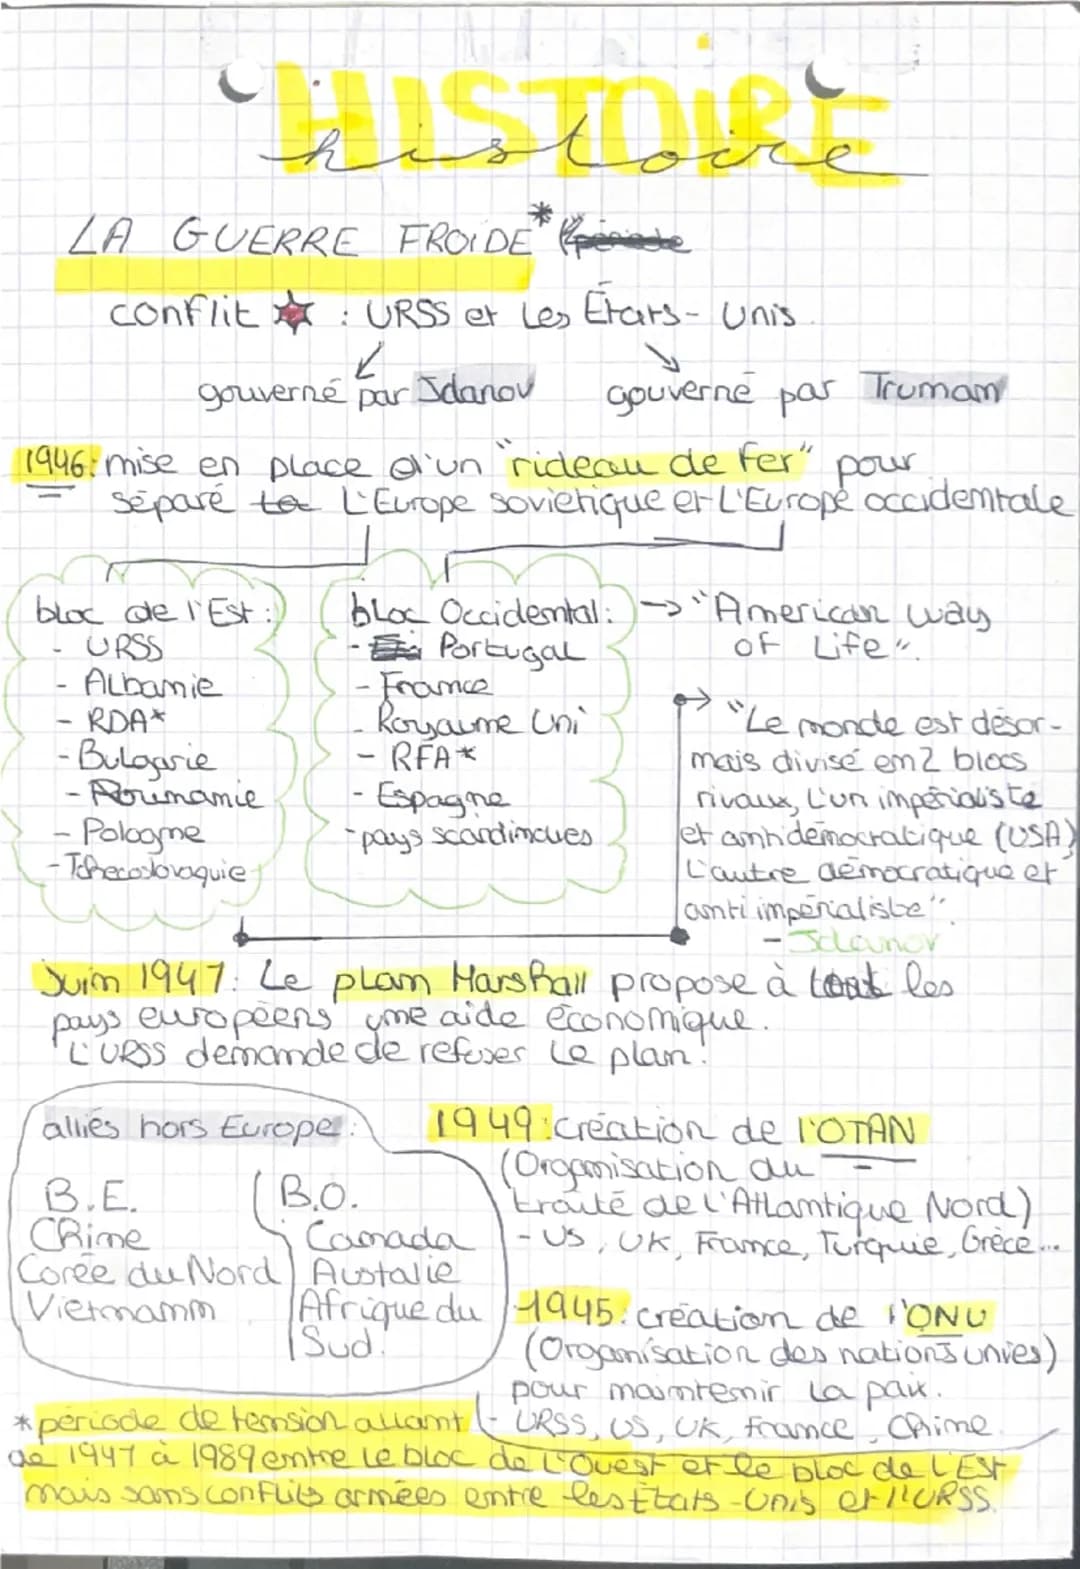 HISTOIRE
histoire
LA GUERRE FROIDE*
conflit : URSS et les États-Unis.
gouverné par Jdanov
gouverné par Trumam
1946: mise en place d'un "rideau de fer" pour
séparé L'Europe soviétique et L'Europe occidentale
bloc de l'Est :
- URSS
- Albanie
- RDA*
- Bulgarie
- Roumanie
- Pologne
- Tchecoslovaquie
bloc Occidental :
- Portugal
- France
- Royaume Uni
- RFA*
- Espagne
- pays scandinaves
→ "American way
of Life".
"Le monde est désor-
mais divisé en 2 blocs
rivaux, L'un impérialiste
et antidémocratique (USA)
L'autre démocratique et
anti impérialiste".
- Jdanov
Juin 1947: Le plan Marshall propose à tout les
pays européens une aide économique.
L'URSS demande de refuser le plan.
alliés hors Europe :
B.E.
Chine
Corée du Nord
Vietnamm
B.O.
Canada
Austalie
Afrique du
Sud.
1949: création de l'OTAN
(Organisation du
traité de L'Atlantique Nord)
- US, UK, France, Turquie, Grèce...
1945: création de l'ONU
(Organisation des nations unies)
pour maintenir la paix.
- URSS, US, UK, France, Chine.
* période de tension allant
de 1947 à 1989 entre le bloc de L'Ouest et le bloc de L'Est
mais sans conflits armées entre les Etats-Unis et l'URSS.